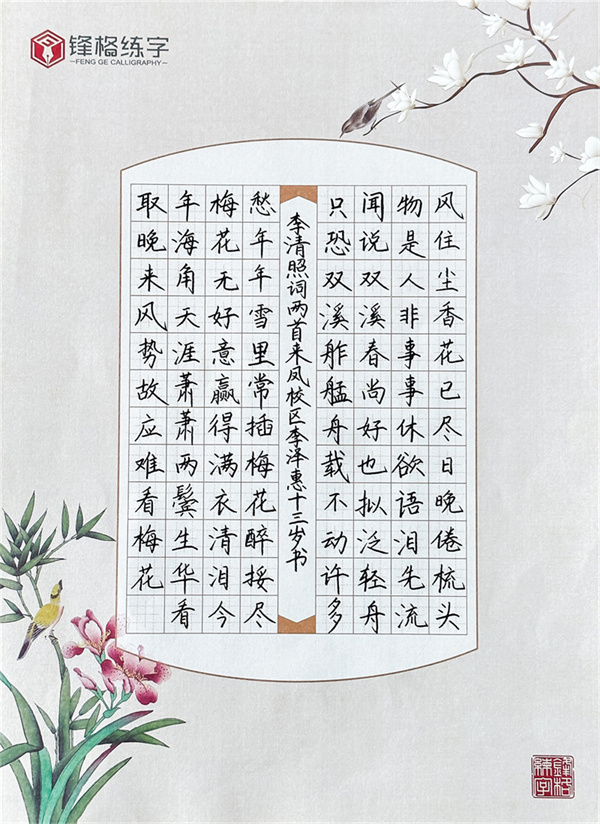 锋格练字
FENG GE CALLIGRAPHY
风住尘香花已尽日晚倦梳头
物是人非事事休欲语泪先流
闻说双溪春尚好也拟泛轻舟
只恐双溪舴艋舟载不动许多
李清照词两首来凤校区李泽惠十三岁书
愁年年雪里常插梅花醉挼尽
梅花无好意赢得满衣清泪今
年海角天涯萧萧两鬓生华看
取晚来风势故应难看梅花
鋒格
練字